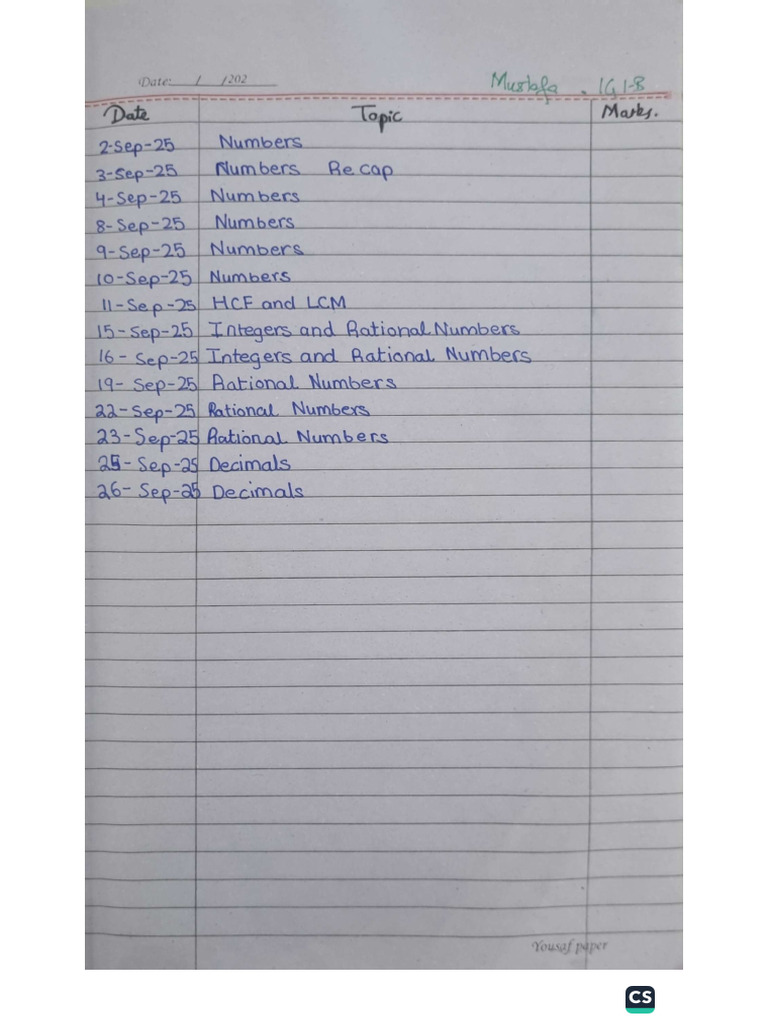 Date: / /202
Mustafa . IG I-B
Date Topic Marks.
2-Sep-25 Numbers
3-Sep-25 Numbers Recap
4-Sep-25 Numbers
8-Sep-25 Numbers
9-Sep-25 Numbers
10-Sep-25 Numbers
11-Sep-25 HCF and LCM
15-Sep-25 Integers and Rational Numbers
16-Sep-25 Integers and Rational Numbers
19-Sep-25 Rational Numbers
22-Sep-25 Rational Numbers
23-Sep-25 Rational Numbers
25-Sep-25 Decimals
26-Sep-25 Decimals
Yousaf paper
CS